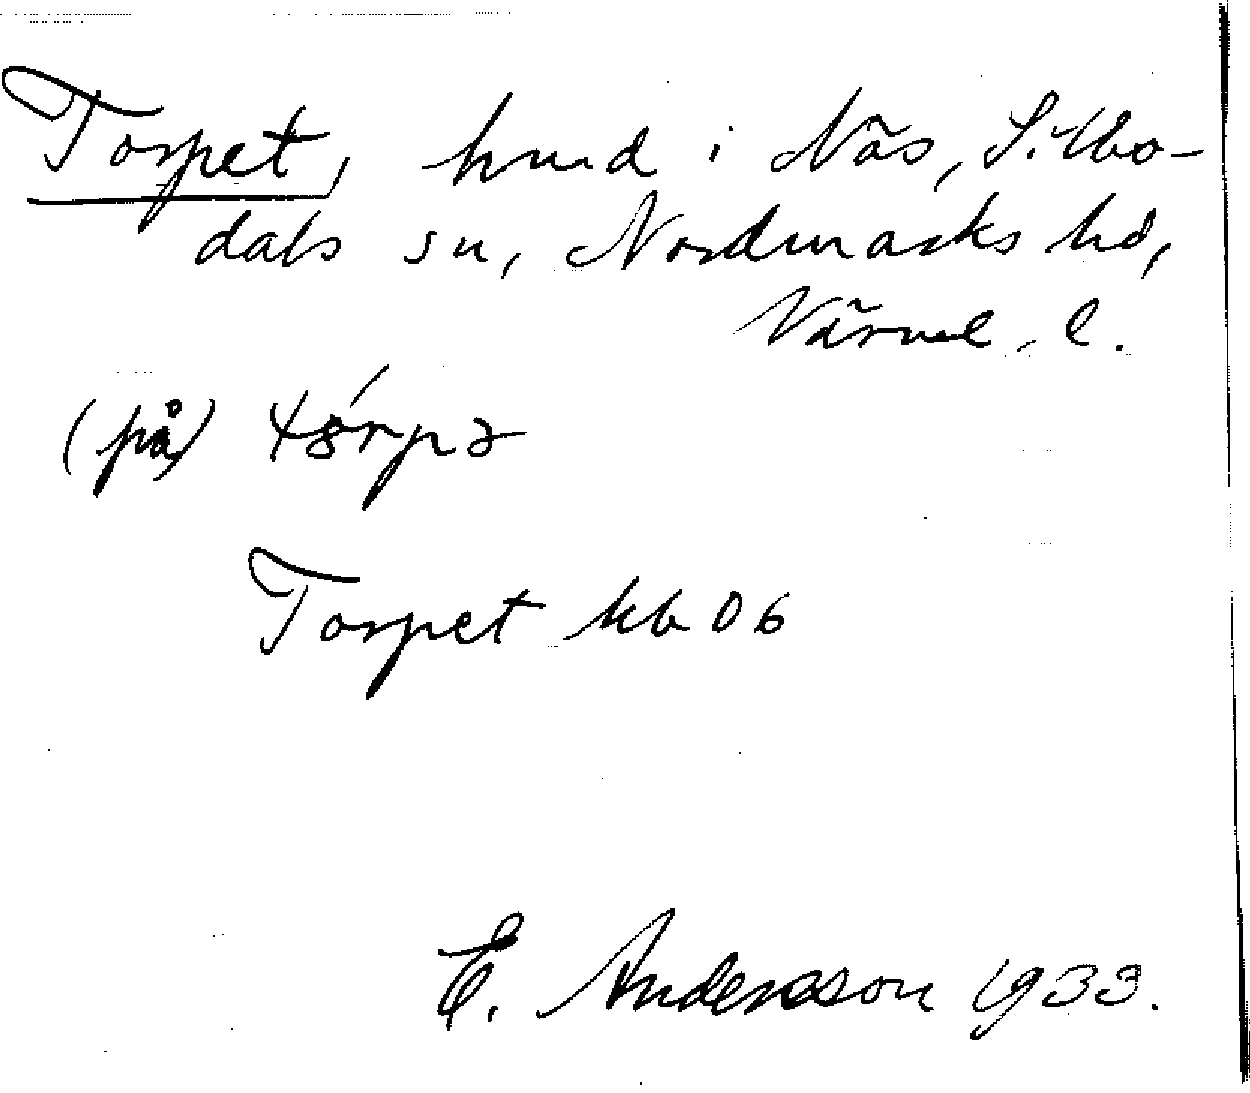 Torpet, hmd i Näs, Silbo-
dals sn, Nordmarks hd,
Värml. l.
(på)
Torpet kb 06
E. Andersson 1933.